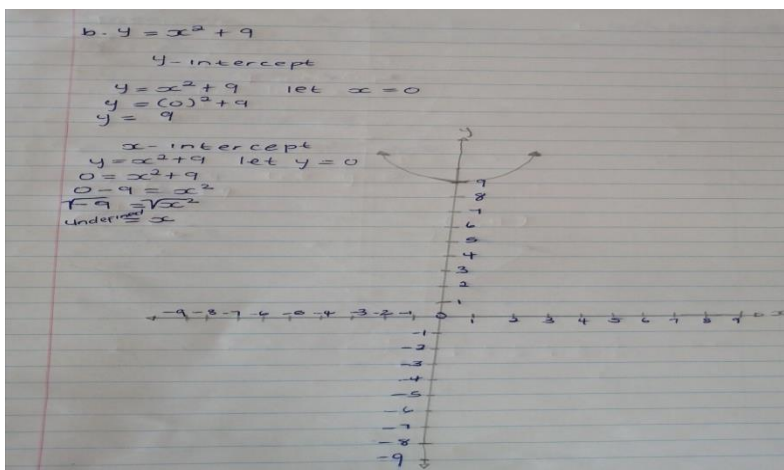 b. y = x² + 9
y-intercept
y = x² + 9 let x = 0
y = (0)² + 9
y = 9
x-intercept
y = x² + 9 let y = 0
0 = x² + 9
0 - 9 = x²
√-9 = √x²
undefined = x
y
9
8
7
6
5
4
3
2
1
-9 -8 -7 -6 -5 -4 -3 -2 -1 0 1 2 3 4 5 6 7 8 9 x
-1
-2
-3
-4
-5
-6
-7
-8
-9